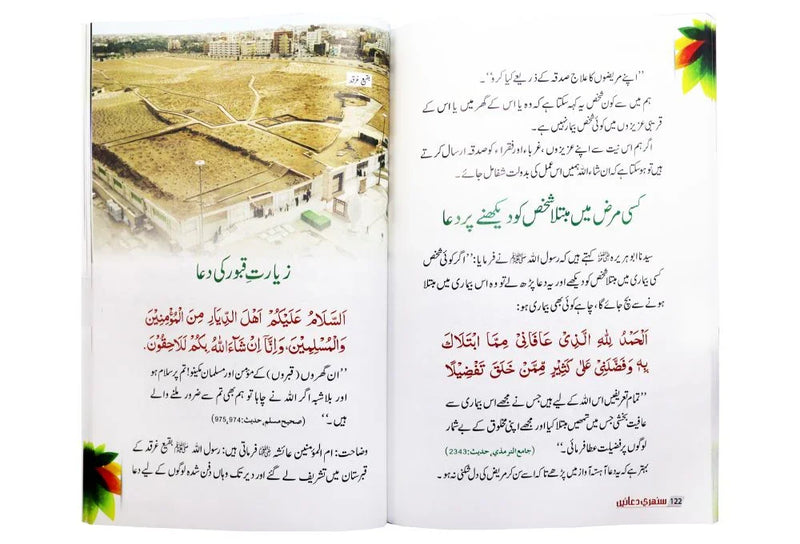 ''اپنے مریضوں کا علاج صدقہ کے ذریعے کیا کرو''۔
ہم میں سے کون شخص یہ کہہ سکتا ہے کہ وہ یا اس کے گھر میں یا اس کے
قریبی عزیزوں میں کوئی شخص بیمار نہیں ہے۔
اگر ہم اس نیت سے اپنے عزیزوں، غرباء اور فقراء کو صدقہ ارسال کرتے
ہیں تو ہو سکتا ہے کہ ان شاء اللہ ہمیں اس عمل کی بدولت شفا مل جائے۔
کسی مرض میں مبتلا شخص کو دیکھنے پر دعا
سیدنا ابو ہریرہ کہتے ہیں کہ رسول اللہ ﷺ نے فرمایا: ''اگر کوئی شخص
کسی بیماری میں مبتلا شخص کو دیکھے اور یہ دعا پڑھ لے تو وہ اس بیماری میں مبتلا
ہونے سے بچ جائے گا، چاہے کوئی بھی بیماری ہو:
اَلْحَمْدُ لِلّٰهِ الَّذِیْ عَافَانِیْ مِمَّا ابْتَلَاكَ
بِهٖ وَفَضَّلَنِیْ عَلٰی كَثِیْرٍ مِّمَّنْ خَلَقَ تَفْضِیْلًا
''تمام تعریفیں اس اللہ کے لیے ہیں جس نے مجھے اس بیماری سے
عافیت بخشی جس میں تمھیں مبتلا کیا اور مجھے اپنی مخلوق کے بے شمار
لوگوں پر فضیلت عطا فرمائی۔'' (جامع الترمذی، حدیث: 2343)
بہتر ہے کہ یہ دعا آہستہ آواز میں پڑھے تاکہ اسے سن کر مریض کی دل شکنی نہ ہو۔
سنہری دعائیں 122
بقیع غرقد
زیارتِ قبور کی دعا
اَلسَّلَامُ عَلَیْكُمْ اَهْلَ الدِّیَارِ مِنَ الْمُؤْمِنِیْنَ
وَالْمُسْلِمِیْنَ، وَاِنَّا اِنْ شَآءَ اللّٰهُ بِكُمْ لَلَاحِقُوْنَ.
''ان گھروں (قبروں) کے مؤمن اور مسلمان مکینو! تم پر سلام ہو
اور بلاشبہ اگر اللہ نے چاہا تو ہم بھی تم سے ضرور ملنے والے
ہیں۔'' (صحیح مسلم، حدیث: 975,974)
وضاحت: ام المؤمنین عائشہ فرماتی ہیں: رسول اللہ ﷺ بقیع غرقد کے
قبرستان میں تشریف لے گئے اور دیر تک وہاں دفن شدہ لوگوں کے لیے دعا